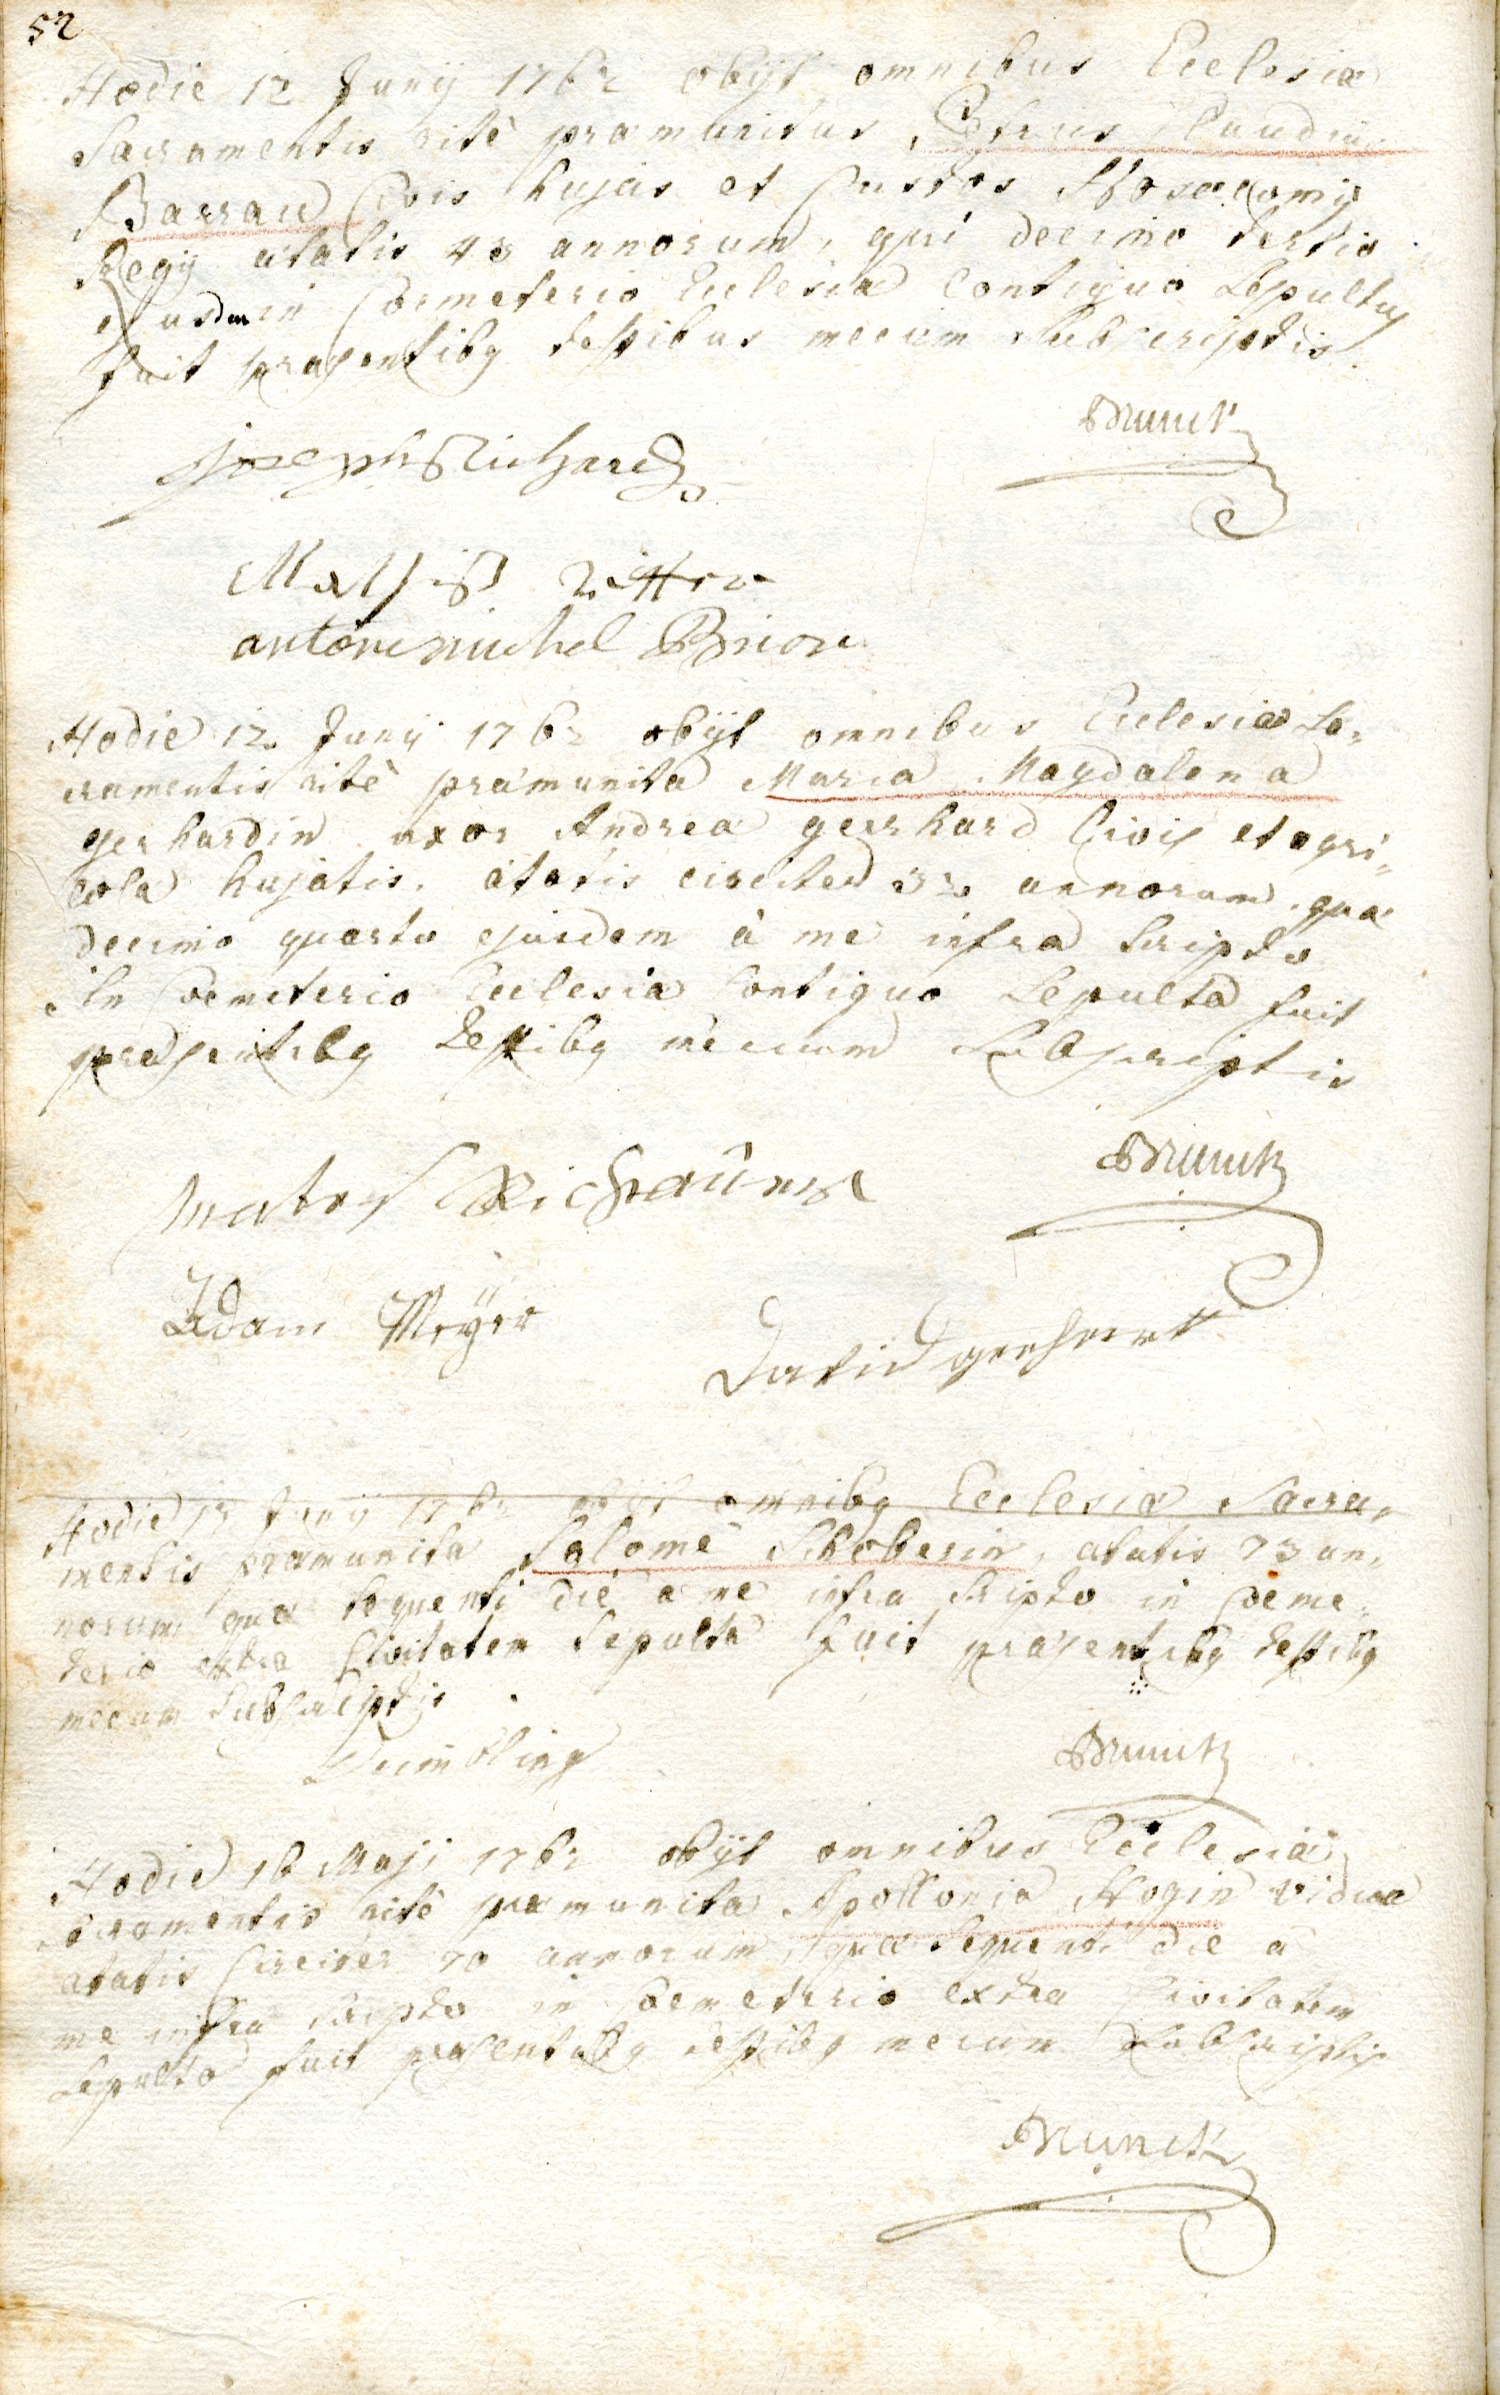 52
Hodie 12 Junij 1762 obijt omnibus Ecclesiæ
Sacramentis ritè præmunitus Petrus Claudius
Barrau Civis hujas et Custos Nosocomij
Regij ætatis 43 annorum, qui decimo tertio
ejusdem in Coemeterio Ecclesiæ Contiguo Sepultus
fuit præsentibq testibus mecum Subscriptis.
Brunck
joseph Richard
Mathis Ritter
antoine michel Brion
Hodie 12. Junij 1762 obijt omnibus Ecclesiæ Sa,,
cramentis ritè præmunita Maria Magdalena
gerhardin uxor Andreæ gerrhard Civis et agri,,
colæ hujatis. ætatis circiter 32 annorum. quæ
decimo quarto ejusdem à me infra Scripto
in Coemeterio Ecclesiæ Contiguo Sepulta fuit
præsentibq testibq mecum Subscriptis
Brunck
Adam Meÿer
David gerhart
Hodie 12 Junij 1762 obijt omnibq Ecclesiæ Sacra,,
mentis præmunita Salome Schoberin, ætatis 73 an,,
norum quæ sequenti die à me infra Scripto in Coeme,,
terio extra Civitatem Sepulta fuit præsentibq testibq
mecum Subscriptis
Brunck
Hodie 16 Maji 1762 obijt omnibus Ecclesiæ
Sacramentis ritè præmunita Apollonia Nogin vidua
ætatis Circiter 70 annorum, quæ Sequenti die à
me infra Scripto in Coemeterio extra Civitatem
Sepulta fuit præsentibq testibq mecum Subscriptis
Brunck